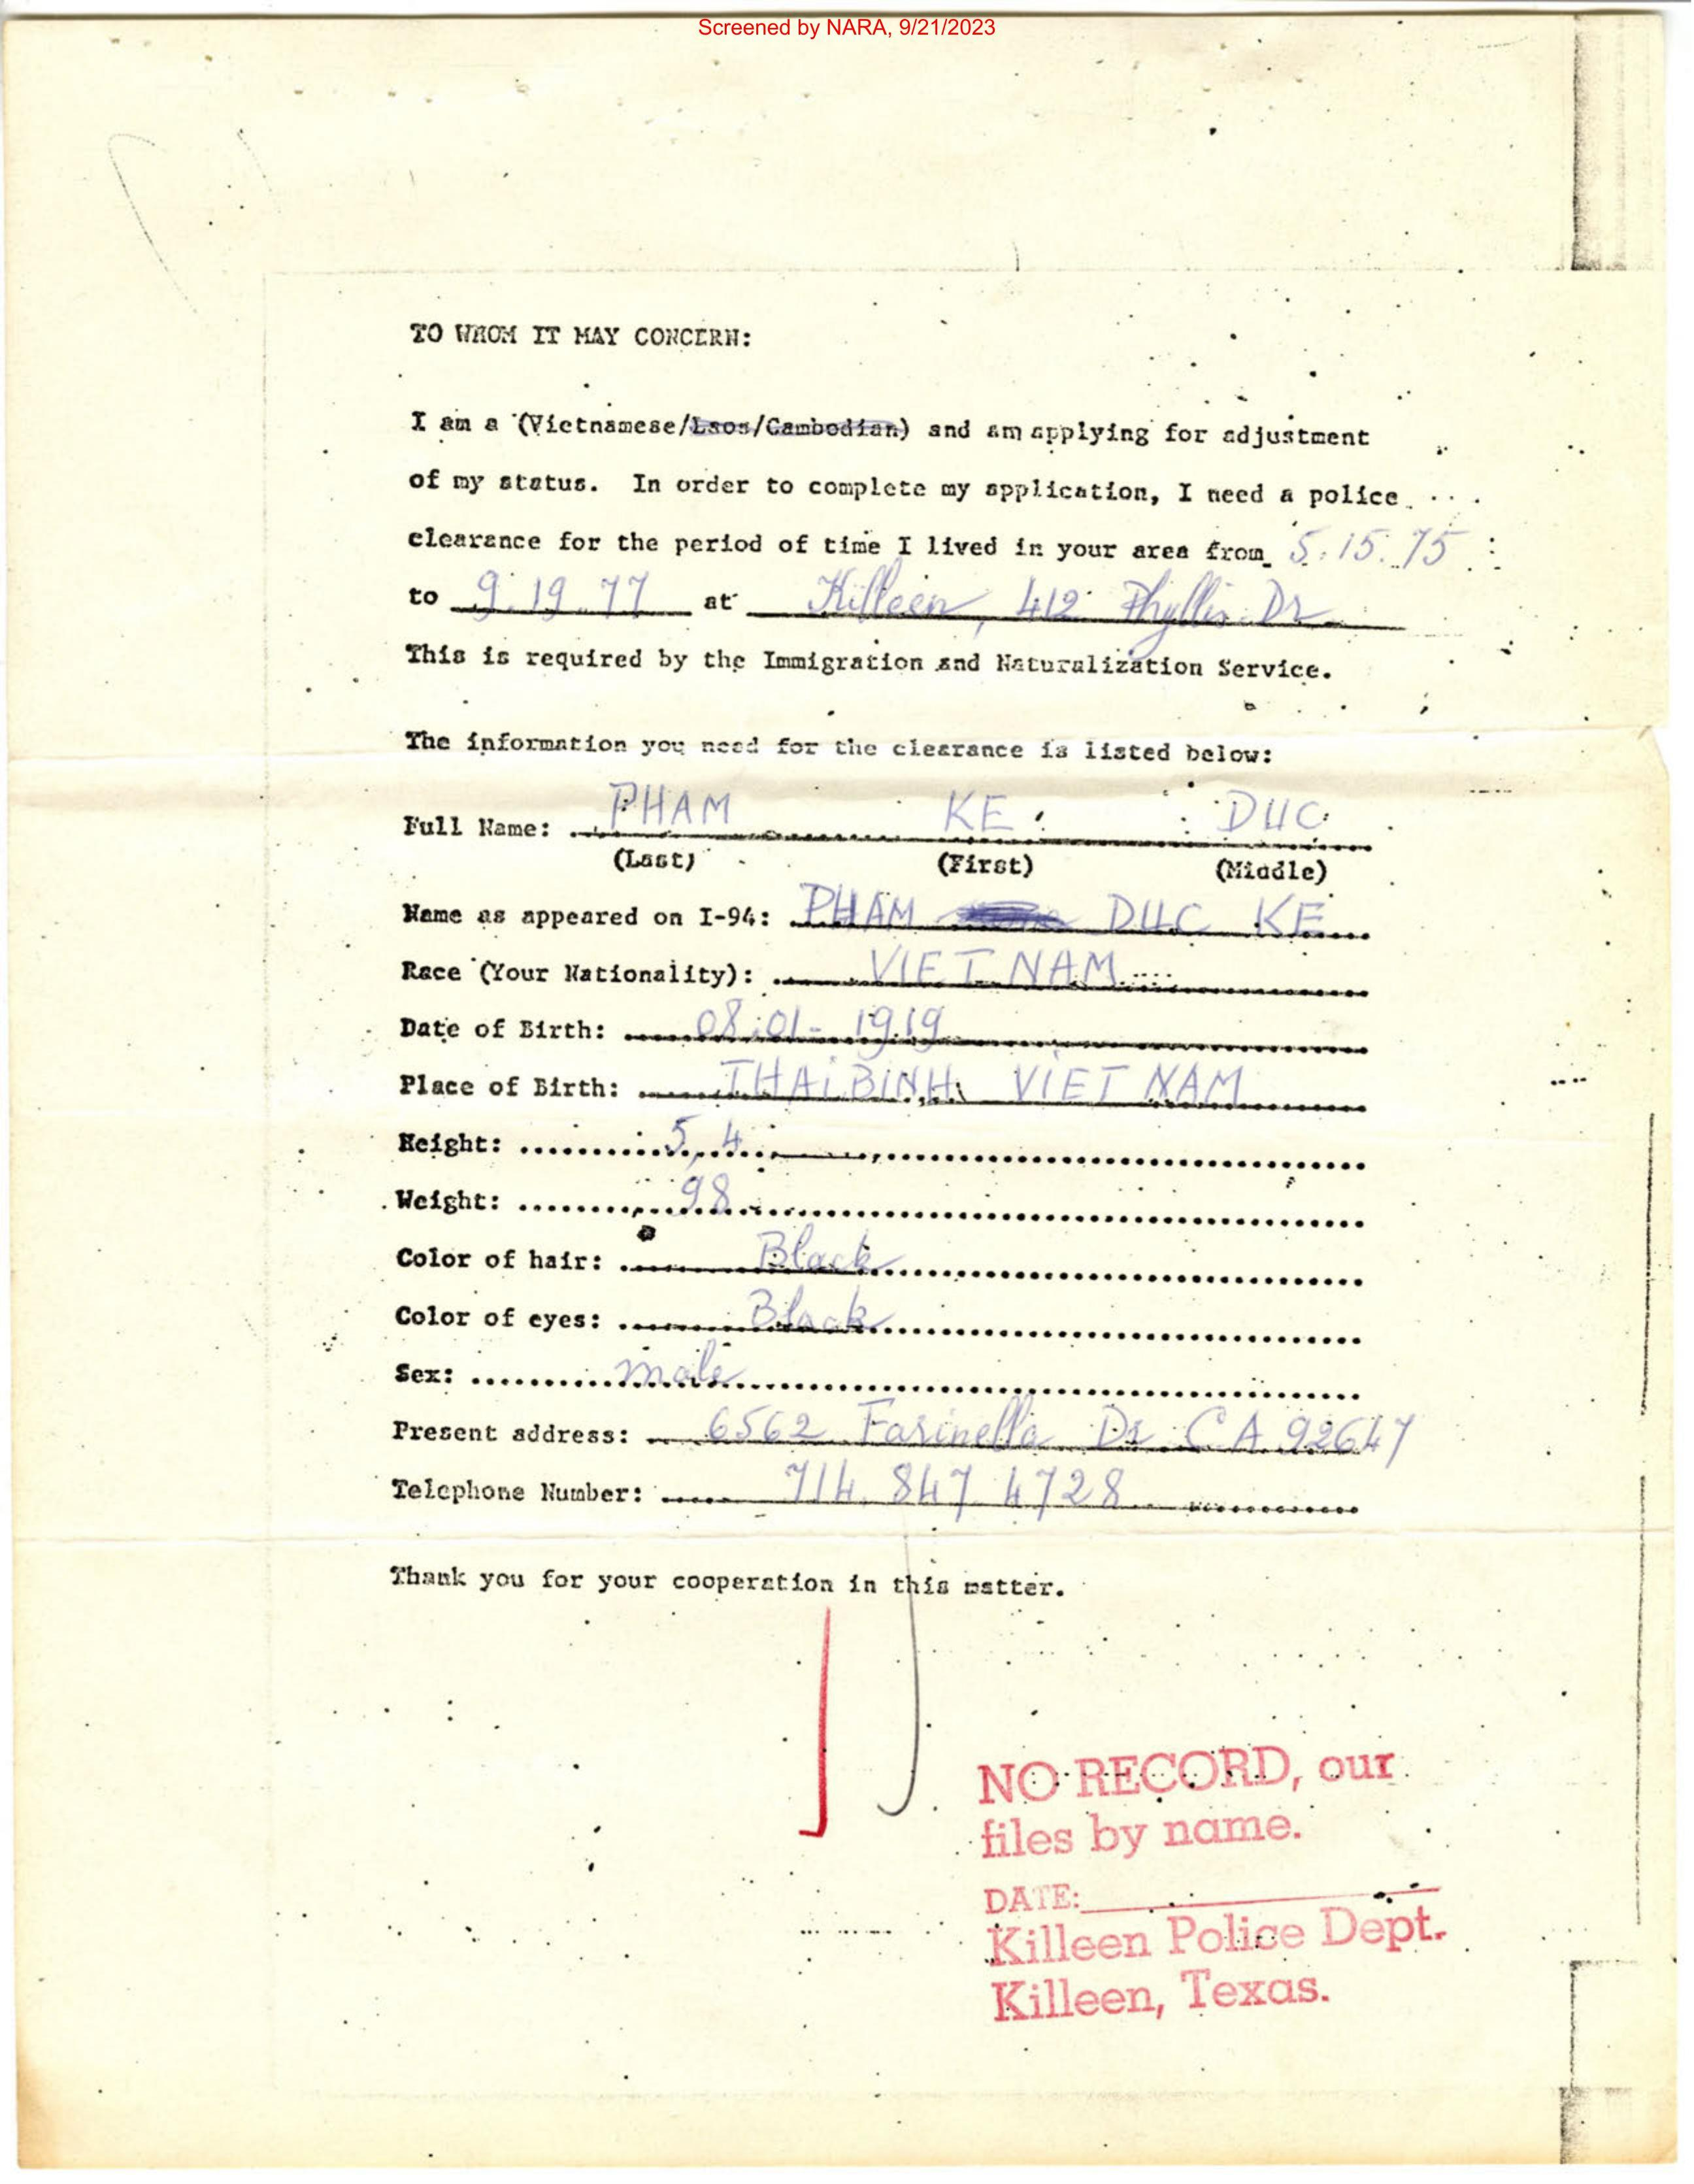 Screened by NARA, 9/21/2023
TO WHOM IT MAY CONCERN:
I am a (Vietnamese/Laos/Cambodian) and am applying for adjustment
of my status. In order to complete my application, I need a police
clearance for the period of time I lived in your area from 5.15.75
to 9.19.77 at Killeen, 412 Phyllis Dr
This is required by the Immigration and Naturalization Service.
The information you need for the clearance is listed below:
Full Name: PHAM KE DUC
(Last) (First) (Middle)
Name as appeared on I-94: PHAM DUC KE
Race (Your Nationality): VIET NAM
Date of Birth: 08-01-1919
Place of Birth: THAI BINH VIET NAM
Height: 5,4
Weight: 98
Color of hair: Black
Color of eyes: Black
Sex: male
Present address: 6562 Farinella Dr CA 92647
Telephone Number: 714 847 4728
Thank you for your cooperation in this matter.
NO RECORD, our
files by name.
DATE:
Killeen Police Dept.
Killeen, Texas.